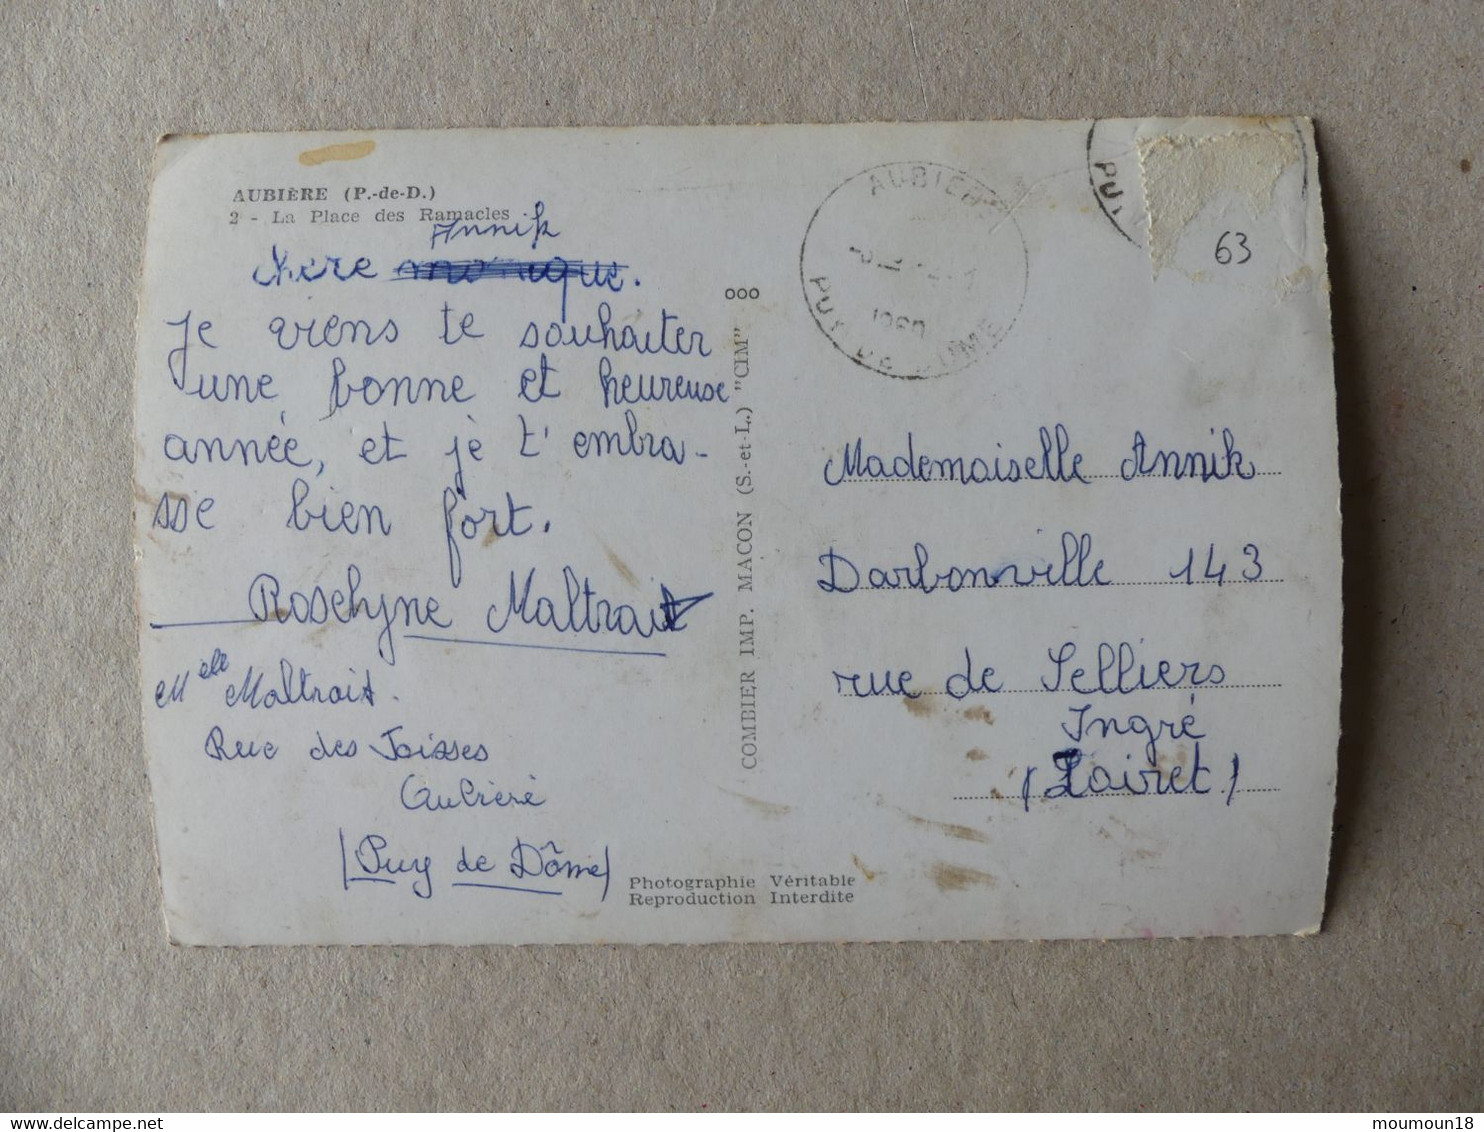 AUBIÈRE (P.-de-D.)
2 - La Place des Ramacles
Annik
chère monique.
Je viens te souhaiter
une bonne et heureuse
année, et je t'embra-
sse bien fort.
Roselyne Maltrait
Melle Maltrait.
Rue des Foisses
Aubière
(Puy de Dôme)
ooo
COMBIER IMP. MACON (S.-et-L.) "CIM"
Photographie Véritable
Reproduction Interdite
AUBIERE
PUY DE DOME
PUY
63
Mademoiselle Annik
Darbonville 143
rue de Selliers
Ingré
(Loiret)
www.delcampe.net
moumoun18